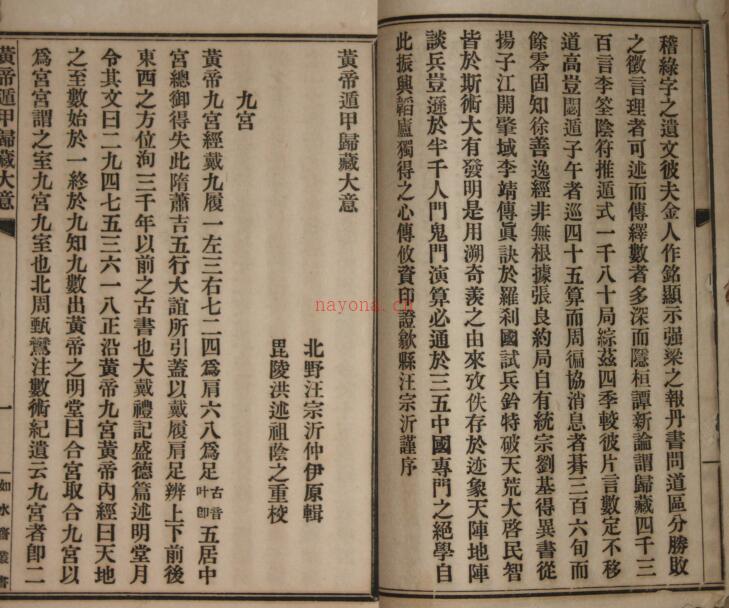 稽綠字之遺文彼夫金人作銘顯示强梁之報丹書問道區分勝敗
之徵言理者可述而傳繹數者多深而隱桓譚新論謂歸藏四千三
百言李筌陰符推遁式一千八十局綜茲四季較彼片言數定不移
道高豈閟遁子午者巡四十五算而周徧協消息者朞三百六旬而
餘零固知徐善逸經非無根據張良約局自有統宗劉基得異書從
揚子江開肇域李靖傳眞訣於羅利國試兵鈐特破天荒大啓民智
皆於斯術大有發明是用溯奇羨之由來攷佚存於迹象天陣地陣
談兵豈遜於半千人門鬼門演算必通於三五中國專門之絕學自
此振興韜廬獨得之心傳攸資印證歙縣汪宗沂謹序
黃帝遁甲歸藏大意
北野汪宗沂仲伊原輯
毘陵洪述祖蔭之重校
九宮
黃帝九宮經戴九履一左三右七二四爲肩六八爲足古音叶卽五居中
宮總御得失此隋蕭吉五行大誼所引蓋以戴履肩足辨上下前後
東西之方位洵三千年以前之古書也大戴禮記盛德篇述明堂月
令其文曰二九四七五三六一八正沿黃帝九宮黃帝內經曰天地
之至數始於一終於九知九數出黃帝之明堂曰合宮取合九宮以
爲宮宮謂之室九宮九室也北周甄鸞注數術紀遺云九宮者卽二
黃帝遁甲歸藏大意
一
如水齋叢書
nayona.cn